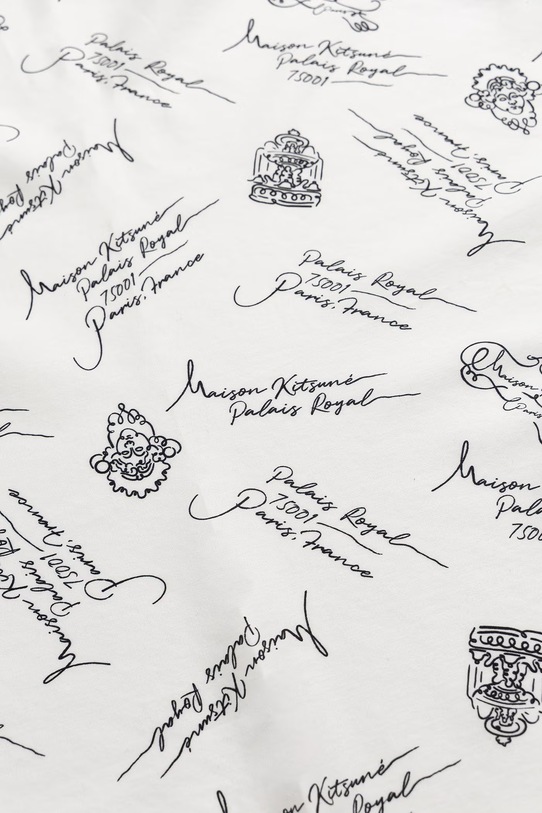 Palais Royal
75001
Paris, France
Maison Kitsuné
Palais Royal
75001
Maison Kitsuné
Palais Royal
75001
Paris, France
Maison Kitsuné
Palais
Maison Kitsuné
Palais Royal
75001
Paris, France
Palais Royal
75001
Paris, France
Maison Kitsuné
Palais Royal
Maison
Paris
Maison
Palais Royal
75001
Paris, France
Maison
Palais
75001
Paris, France
Maison Kitsuné
Palais Royal
Kitsuné
Royal